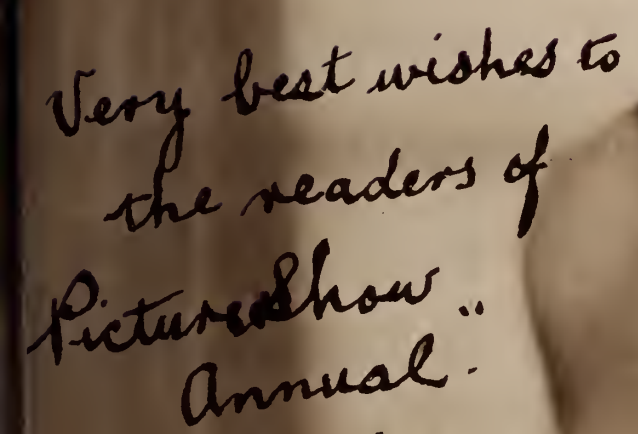 Very best wishes to
the readers of
Picture Show ..
Annual.